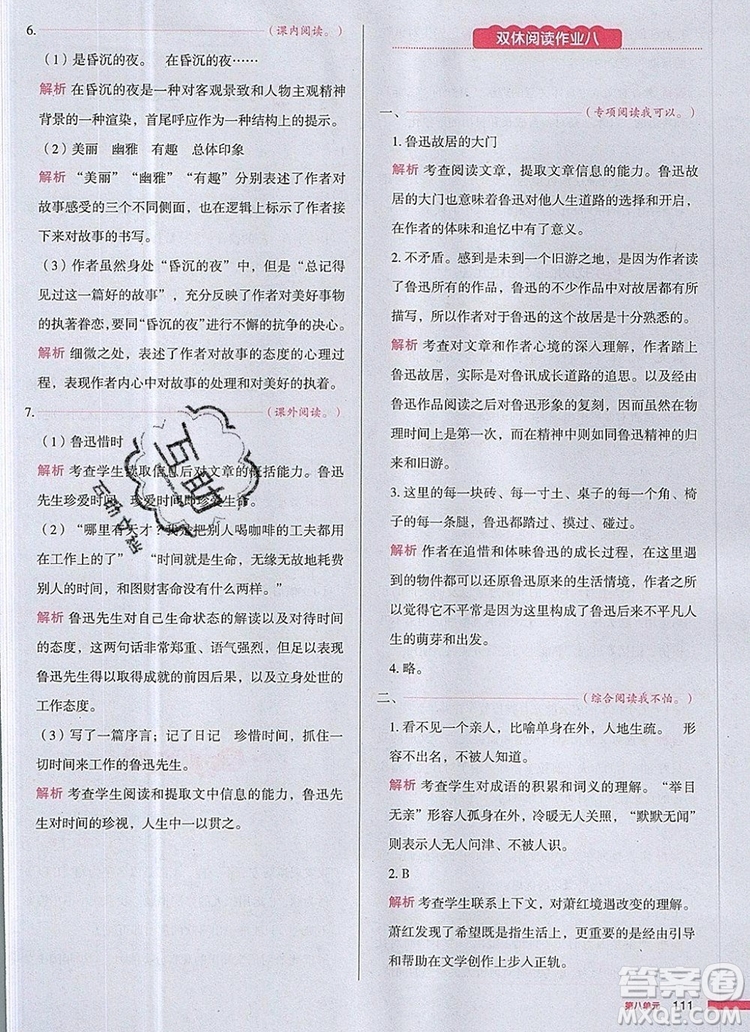 6.
(课内阅读。)
(1)是昏沉的夜。 在昏沉的夜……
解析 在昏沉的夜是一种对客观景致和人物主观精神
背景的一种渲染，首尾呼应作为一种结构的提示。
(2)美丽 幽雅 有趣 总体印象
解析 “美丽”“幽雅”“有趣”分别表述了作者对
故事感受的三个不同侧面，也在逻辑上提示了作者接
下来对故事的书写。
(3)作者虽然身处“昏沉的夜”中，但“总记得
见这一篇好的故事”，充分反映了作者对美好事物
的执著眷恋，要同“昏沉的夜”作韧的抗争的决心。
解析 细微之处，表述了作者对故事的态度的心理过
程，有作者内心中对故事的处理和对美好的执着。
7.
(课外阅读。)
(1)鲁迅惜时
解析 考查学生读取信息后对文章的概括能力。鲁迅
先生珍爱时间，珍爱时间即珍爱生命。
(2)“哪里有天才？我是把别人喝咖啡的工夫都用
在工作上的了……”“时间就是生命，无缘无故地耗费
别人的时间，和图财害命没有什么两样。”
解析 鲁迅先生对自己生命状态的解读以及对待时间
的态度，这两句话非常郑重、语气强烈，但足以表现
鲁迅先生得以取得成就的原因，以及立身处世的
工作态度。
(3)写了一篇序言；记了日记 珍惜时间，抓紧一切
时间来工作的鲁迅先生。
解析 考查学生阅读和提取文中信息的能力，鲁迅先
生对时间的珍视，人生中一以贯之。
双休阅读作业八
一、
(专项阅读我可以。)
1. 鲁迅故居的大门
解析 考查阅读文章，提取文章信息的能力。鲁迅故
居的大门也意味着鲁迅对他人生道路的选择和开启，
在作者的体味和追忆中有了意义。
2. 不矛盾。感到是一个旧游之地，是因为作者读
了鲁迅所有的作品，鲁迅的不少作品对故居都有
描写，所以作者对于鲁迅的这个故居是十分熟悉的。
解析 考查对文章和作者心境的深入理解，作者踏上
故居，实际是对鲁讯成长道路的追思。以及根据对
鲁迅作品阅读之后对鲁迅形象的复刻，因而并不在物
理时间上是一种旧游，而是对鲁迅精神和鲁迅作品的
和归和旧游。
3. 这里的每一块砖、每一寸土、桌子的每一个角、椅
子的每一条腿，鲁迅都踏过、摸过、碰过。
解析 作者在追惜和体味鲁迅的成长过程，在寻常所
到的物件都可以还原鲁迅原来的生活情境，作者感
觉得它不平常是因为这是一代伟人鲁迅从不平凡人
生的萌芽和出发。
4. 略。
二、
(综合阅读我不怕。)
1. 看不见一个亲人，比喻单身在外，人地生疏。 形
容不出名，不被人知道。
解析 考查学生对成语的积累和词义的理解。“举目
无亲”形容人孤身在外，冷暖无人关心，“默默无闻”
则表示人无人问津、不被人识。
2. B
解析 考查学生联系上下文，对萧红境遇改变的理解。
萧红发现了了展示自己的机会，更多的是由于引导
和帮助在文学创作上步上正轨。
第八单元 111
互助
答案圈
MXQE.COM